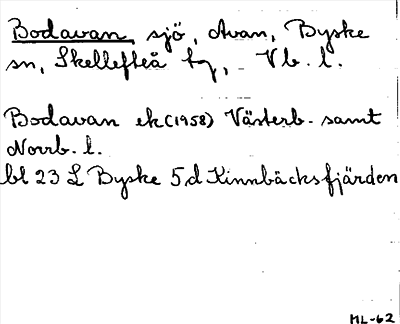 Bodavan sjö, Avan, Byske
sn, Skellefteå tg, Vb. l.
Bodavan ek (1958) Västerb. samt
Norrb. l.
bl 23 L Byske 5d Kinnbäcksfjärden
ML-62